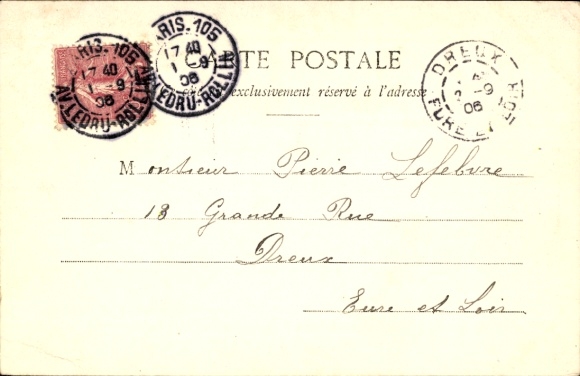 PARIS. 105
17 40
1 -9
06
AV. LEDRU-ROLLIN
PARIS. 105
17 40
1 -9
06
AV. LEDRU-ROLLIN
CARTE POSTALE
exclusivement réservé à l'adresse
DREUX
-9
06
EURE ET LOIR
Monsieur Pierre Lefebvre
13 Grande Rue
Dreux
Eure et Loir